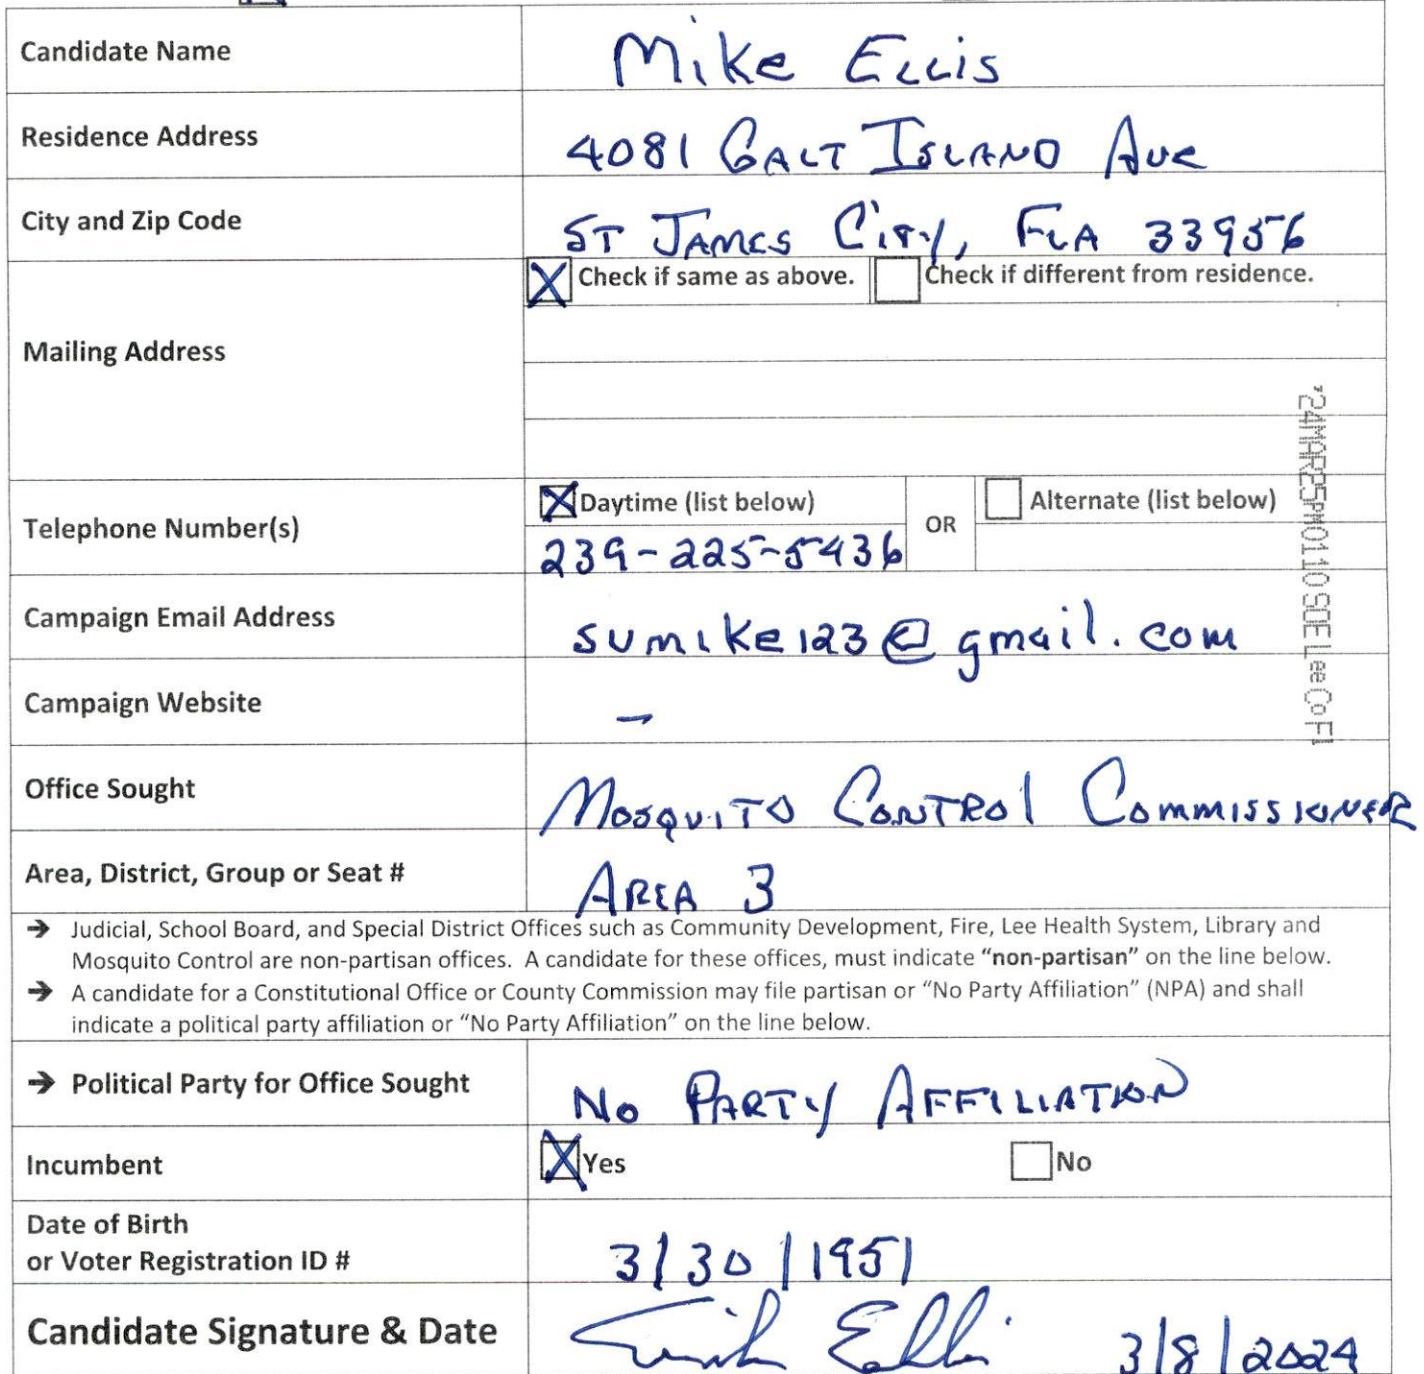 Candidate Name Mike Ellis
Residence Address 4081 Galt Island Ave
City and Zip Code St James City, Fla 33956
Mailing Address
X Check if same as above. Check if different from residence.
Telephone Number(s)
X Daytime (list below) OR Alternate (list below)
239-225-5436
Campaign Email Address sumike123@gmail.com
Campaign Website -
Office Sought Mosquito Control Commissioner
Area, District, Group or Seat # Area 3
→ Judicial, School Board, and Special District Offices such as Community Development, Fire, Lee Health System, Library and
Mosquito Control are non-partisan offices. A candidate for these offices, must indicate “non-partisan” on the line below.
→ A candidate for a Constitutional Office or County Commission may file partisan or “No Party Affiliation” (NPA) and shall
indicate a political party affiliation or “No Party Affiliation” on the line below.
→ Political Party for Office Sought No Party Affiliation
Incumbent X Yes No
Date of Birth
or Voter Registration ID # 3/30/1951
Candidate Signature & Date Mike Ellis 3/8/2024
'24MAR25PM0110 SOE Lee Co Fl